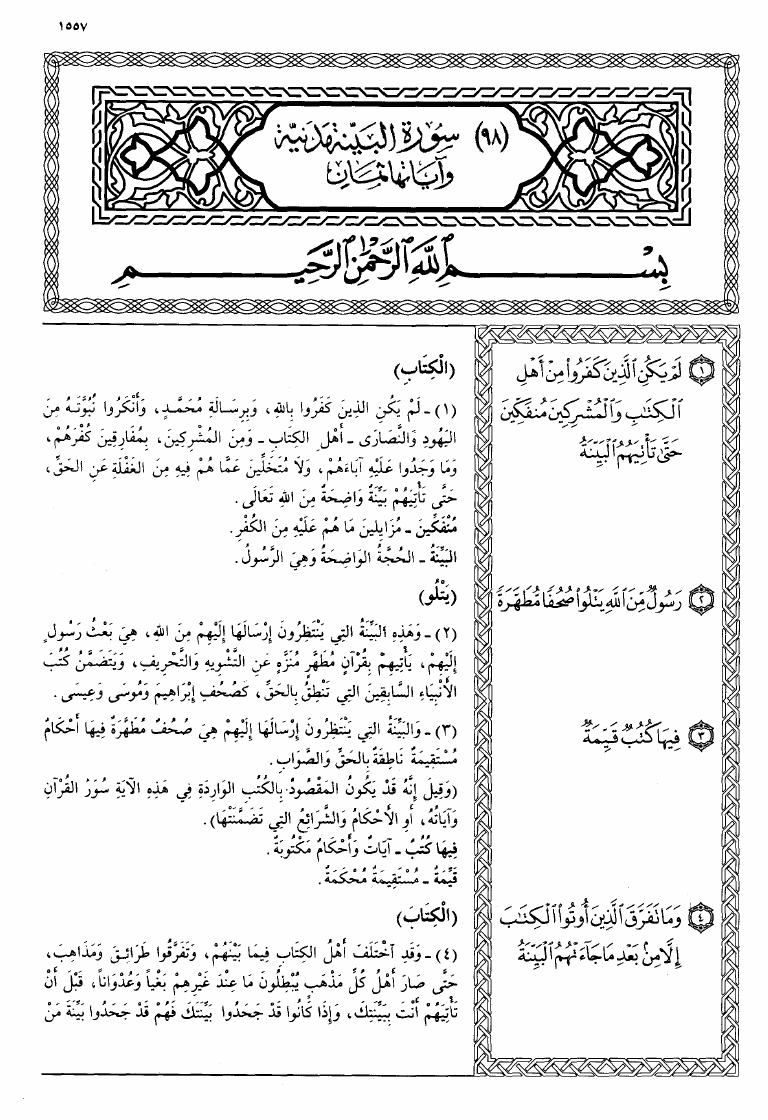 ١٥٥٧
(٩٨) سورة البينة مدنية
وآياتها ثمان
بِسْمِ اللَّهِ الرَّحْمَٰنِ الرَّحِيمِ
١ لَمْ يَكُنِ الَّذِينَ كَفَرُوا مِنْ أَهْلِ
الْكِتَٰبِ وَالْمُشْرِكِينَ مُنفَكِّينَ
حَتَّىٰ تَأْتِيَهُمُ الْبَيِّنَةُ
٢ رَسُولٌ مِّنَ اللَّهِ يَتْلُوا صُحُفًا مُّطَهَّرَةً
٣ فِيهَا كُتُبٌ قَيِّمَةٌ
٤ وَمَا تَفَرَّقَ الَّذِينَ أُوتُوا الْكِتَٰبَ
إِلَّا مِنْ بَعْدِ مَا جَآءَتْهُمُ الْبَيِّنَةُ
(الْكِتَابِ)
(١) - لَمْ يَكُنِ الذِينَ كَفَرُوا بِاللهِ، وَبِرِسَالَةِ مُحَمَّدٍ، وَأَنْكَرُوا نُبُوَّتَهُ مِنَ
اليَهُودِ وَالنَّصَارَى - أَهْلِ الكِتَابِ - وَمِنَ المُشْرِكِينَ، بِمُفَارِقِينَ كُفْرَهُمْ،
وَمَا وَجَدُوا عَلَيْهِ آبَاءَهُمْ، وَلَا مُتَخَلِّينَ عَمَّا هُمْ فِيهِ مِنَ الغَفْلَةِ عَنِ الحَقِّ،
حَتَّى تَأْتِيَهُمْ بَيِّنَةٌ وَاضِحَةٌ مِنَ اللهِ تَعَالَى.
مُنْفَكِّينَ - مُزَايِلِينَ مَا هُمْ عَلَيْهِ مِنَ الكُفْرِ.
البَيِّنَةُ - الحُجَّةُ الوَاضِحَةُ وَهِيَ الرَّسُولُ.
(يَتْلُو)
(٢) - وَهَذِهِ البَيِّنَةُ التِي يَنْتَظِرُونَ إِرْسَالَهَا إِلَيْهِمْ مِنَ اللهِ، هِيَ بَعْثُ رَسُولٍ
إِلَيْهِمْ، يَأْتِيهِمْ بِقُرْآنٍ مُطَهَّرٍ مُنَزَّهٍ عَنِ التَّشْوِيهِ وَالتَّحْرِيفِ، وَيَتَضَمَّنُ كُتُبَ
الأَنْبِيَاءِ السَّابِقِينَ التِي تَنْطِقُ بِالحَقِّ، كَصُحُفِ إِبْرَاهِيمَ وَمُوسَى وَعِيسَى.
(٣) - وَالبَيِّنَةُ التِي يَنْتَظِرُونَ إِرْسَالَهَا إِلَيْهِمْ هِيَ صُحُفٌ مُطَهَّرَةٌ فِيهَا أَحْكَامٌ
مُسْتَقِيمَةٌ نَاطِقَةٌ بِالحَقِّ وَالصَّوَابِ.
(وَقِيلَ إِنَّهُ قَدْ يَكُونُ المَقْصُودُ بِالكُتُبِ الوَارِدَةِ فِي هَذِهِ الآيَةِ سُوَرُ القُرْآنِ
وَآيَاتُهُ، أَوِ الأَحْكَامُ وَالشَّرَائِعُ التِي تَضَمَّنَتْهَا).
فِيهَا كُتُبٌ - آيَاتٌ وَأَحْكَامٌ مَكْتُوبَةٌ.
قَيِّمَةٌ - مُسْتَقِيمَةٌ مُحْكَمَةٌ.
(الْكِتَابَ)
(٤) - وَقَدِ اخْتَلَفَ أَهْلُ الكِتَابِ فِيمَا بَيْنَهُمْ، وَتَفَرَّقُوا طَرَائِقَ وَمَذَاهِبَ،
حَتَّى صَارَ أَهْلُ كُلِّ مَذْهَبٍ يُبْطِلُونَ مَا عِنْدَ غَيْرِهِمْ بَغْياً وَعُدْوَاناً، قَبْلَ أَنْ
تَأْتِيَهُمْ أَنْتَ بِبَيِّنَتِكَ، وَإِذَا كَانُوا قَدْ جَحَدُوا بَيِّنَتَكَ فَهُمْ قَدْ جَحَدُوا بَيِّنَةَ مَنْ